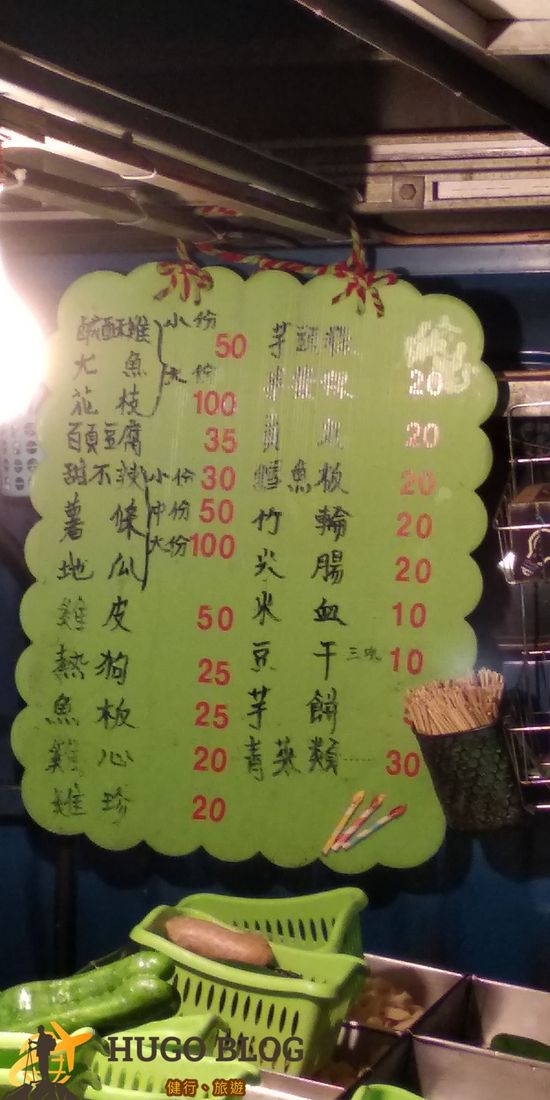 鹹酥雞 小份 50
尤魚 大份
花枝 100
百頁豆腐 35
甜不辣 小份 30
薯條 中份 50
地瓜 大份 100
雞皮 50
熱狗 25
魚板 25
雞心 20
雞珍 20
芋頭粿
20
20
鱈魚板 20
竹輪 20
尖腸 20
米血 10
豆干 三塊 10
芋餅
青菜類 ...... 30
HUGO BLOG
健行、旅遊